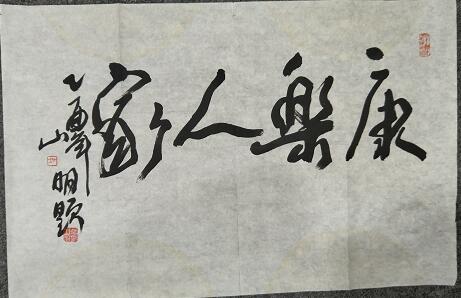 康樂人家
乙酉年
山明題